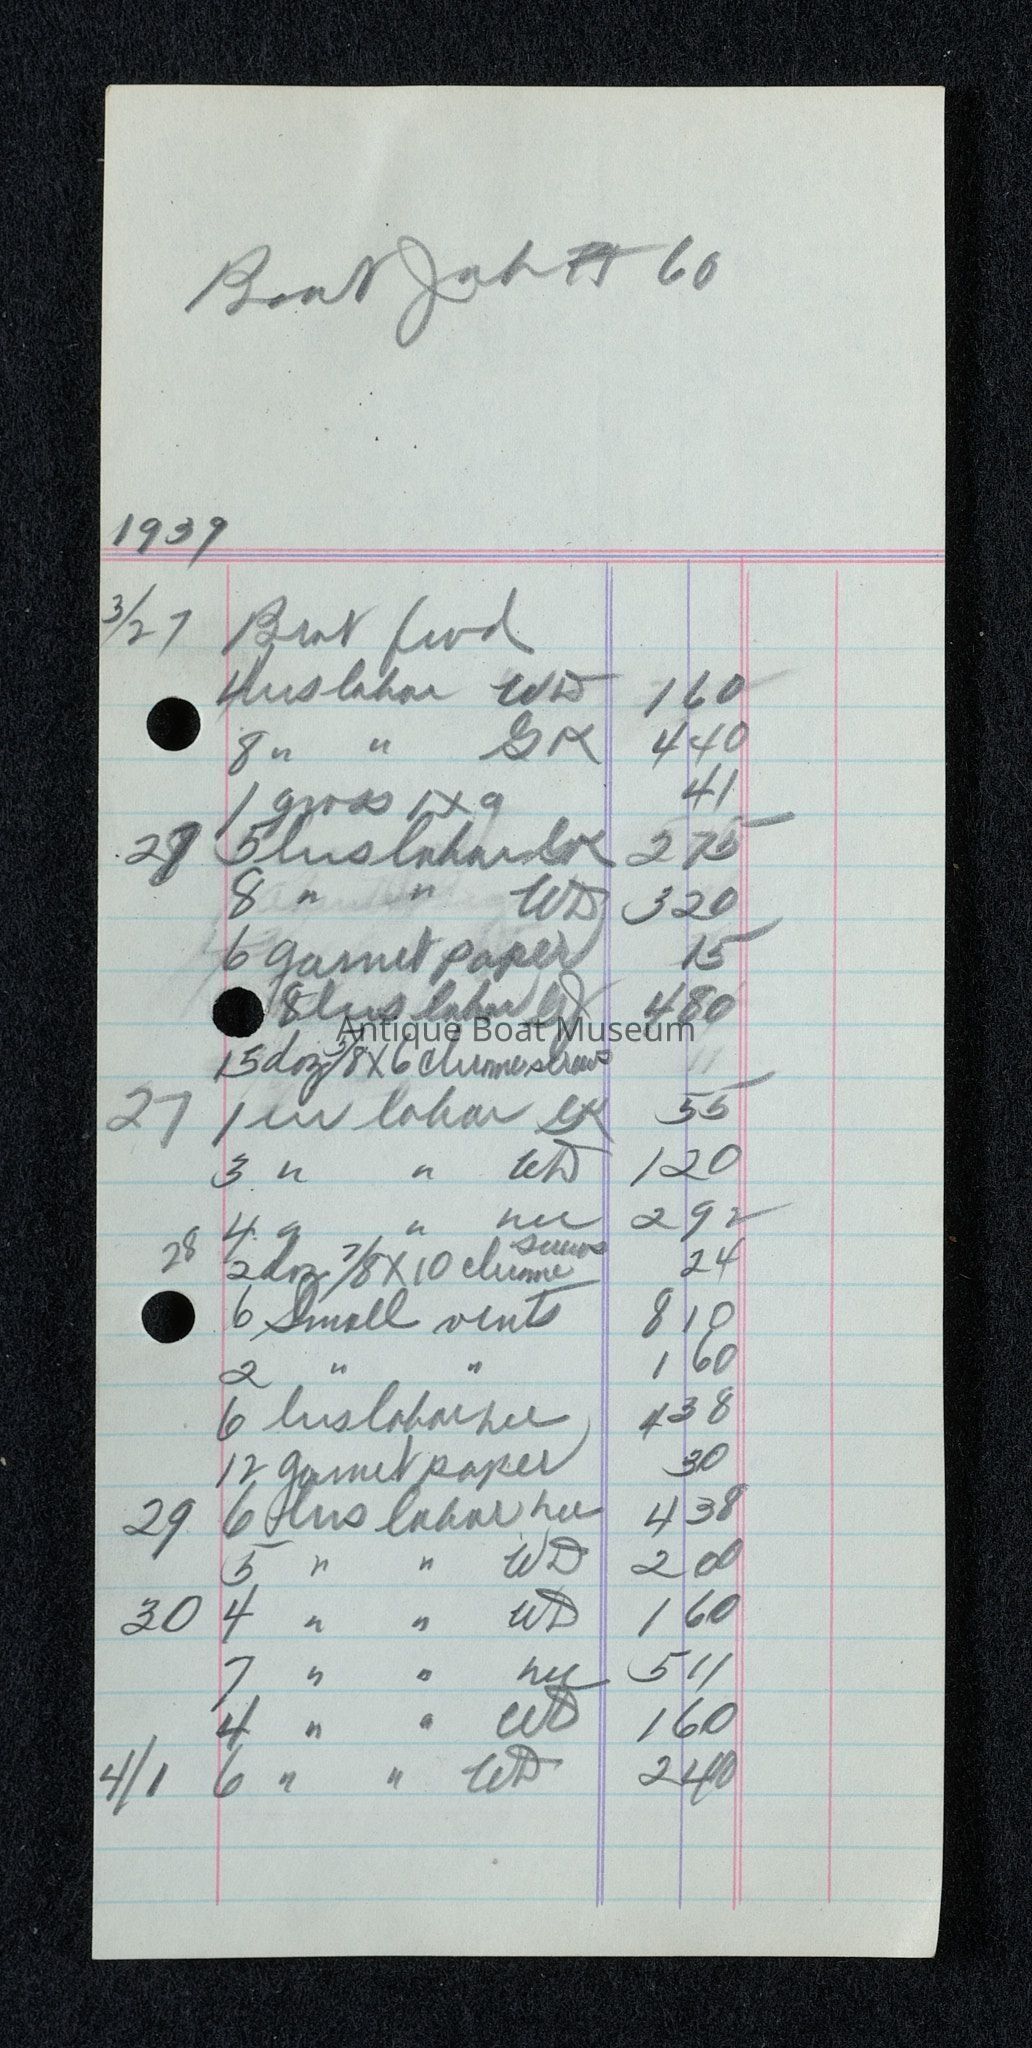 Boat Job # 60
1939
3/27 Boat
4 hrs labor WD 160
8 " " GK 440
1 gross 1 x 9 41
29 5 hrs labor GK 275
8 " " WD 320
6 garnet paper 15
8 hrs labor GK 480
Antique Boat Museum
15 doz 5/8 X 6 chrome screws 11
27 1 hr labor GK 55
3 " " WD 120
4 " 292
28 2 doz 7/8 X 10 chrome screws 24
6 Small vents 810
2 " " 160
6 hrs labor 438
12 garnet paper 30
29 6 hrs labor 438
5 " " WD 200
30 4 " " WD 160
7 " " 511
4 " " WD 160
4/1 6 " " WD 240